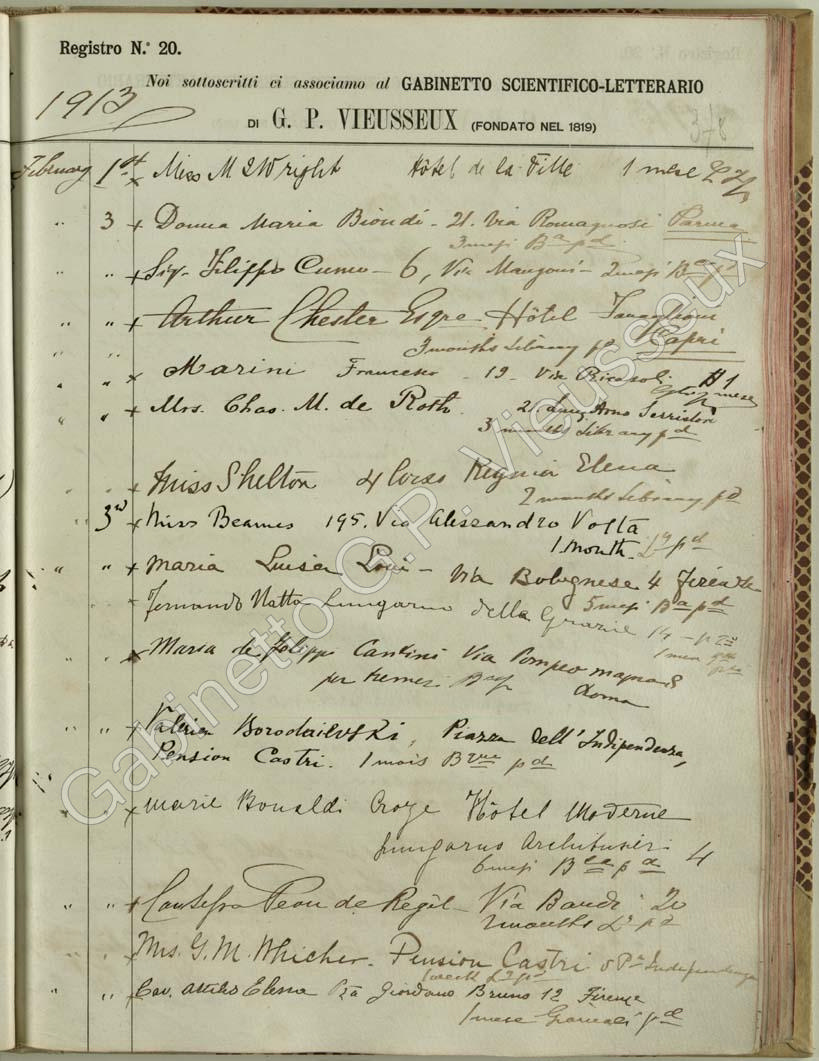 Registro N.º 20.
Noi sottoscritti ci associamo al GABINETTO SCIENTIFICO-LETTERARIO
1913
DI G. P. VIEUSSEUX (FONDATO NEL 1819)
378
February 1st x Miss M Wright Hôtel de la Ville 1 mese
" 3 x Donna Maria Biondi - 21. Via Romagnosi Parma
3 mesi Ba pd.
" " x Sig. Filippo Cuneo - 6, Via Manzoni - 2 mesi pd
" " x Arthur Chester Esqre. Hôtel
3 months Library pd Capri
" " x Marini Francesco - 19 - Via Ricasoli
" " x Mrs. Chas. M. de Roth. 21. Lung'Arno Serristori
3 months Library pd
" " x Miss Shelton 4 Corso Regina Elena
2 months Library pd
3rd x Miss Beames 195. Via Alessandro Volta
1 month. pd
" " x Maria Luisa - Via Bolognese 4 Firenze
5 mesi Ba pd
Fernando Natta Lungarno della Grazie 14
" " x Maria de Filippi Via Pompeo Magno
Roma
" " x Valerien Borodaïevski, Piazza dell'Indipendenza,
Pension Castri. 1 mois pd
" " x Marie Hôtel Moderne
Lungarno 4
6 mesi pd
" " x Peon de Regil - Via Bandi 20
2 months pd
Mrs. G. M. Whicher. Pension Castri Indipendenza
" " x Cav. Attilio Pza Giordano Bruno 12 Firenze
1 mese Giornali pd
Gabinetto G.P. Vieusseux